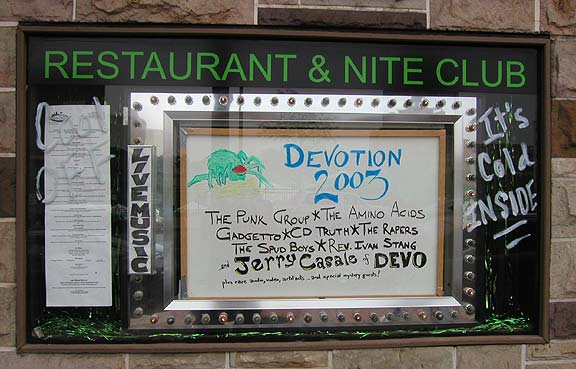 RESTAURANT & NITE CLUB
Cool
Off
LIVE MUSIC
DEVOTION
2003
THE PUNK GROUP★THE AMINO ACIDS
GADGETTO★CD TRUTH★THE RAPERS
THE SPUD BOYS★REV. IVAN STANG
and Jerry Casale of DEVO
plus rare audio, video, artifacts...and special mystery guests!
It's
Cold
INSIDE